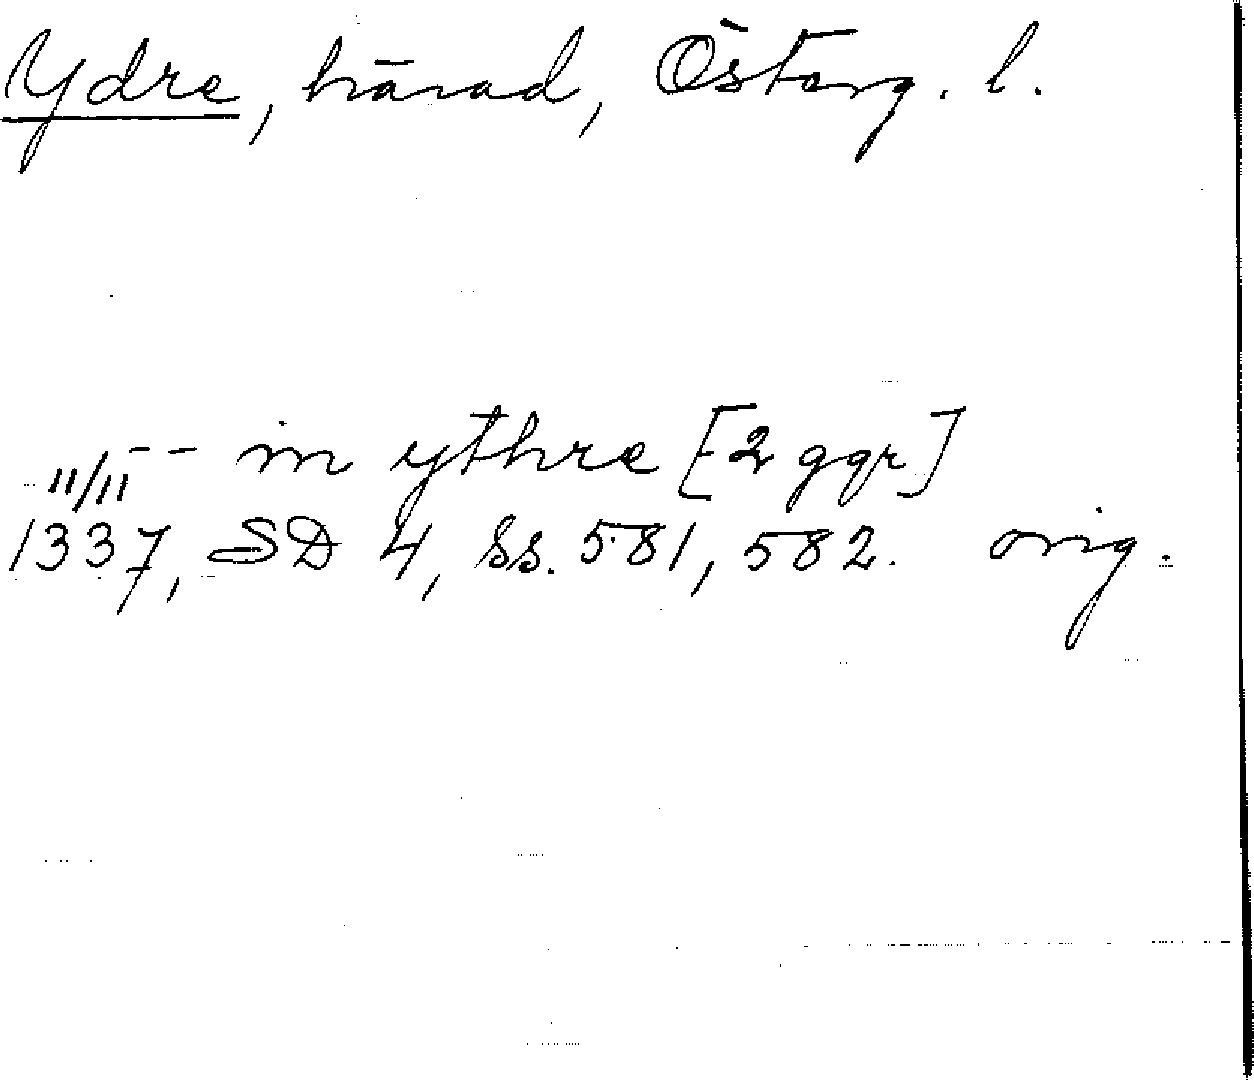 Ydre, härad, Österg. l.
- - in ythre [2 ggr]
11/11 1337, SD 4, ss. 581, 582. orig.